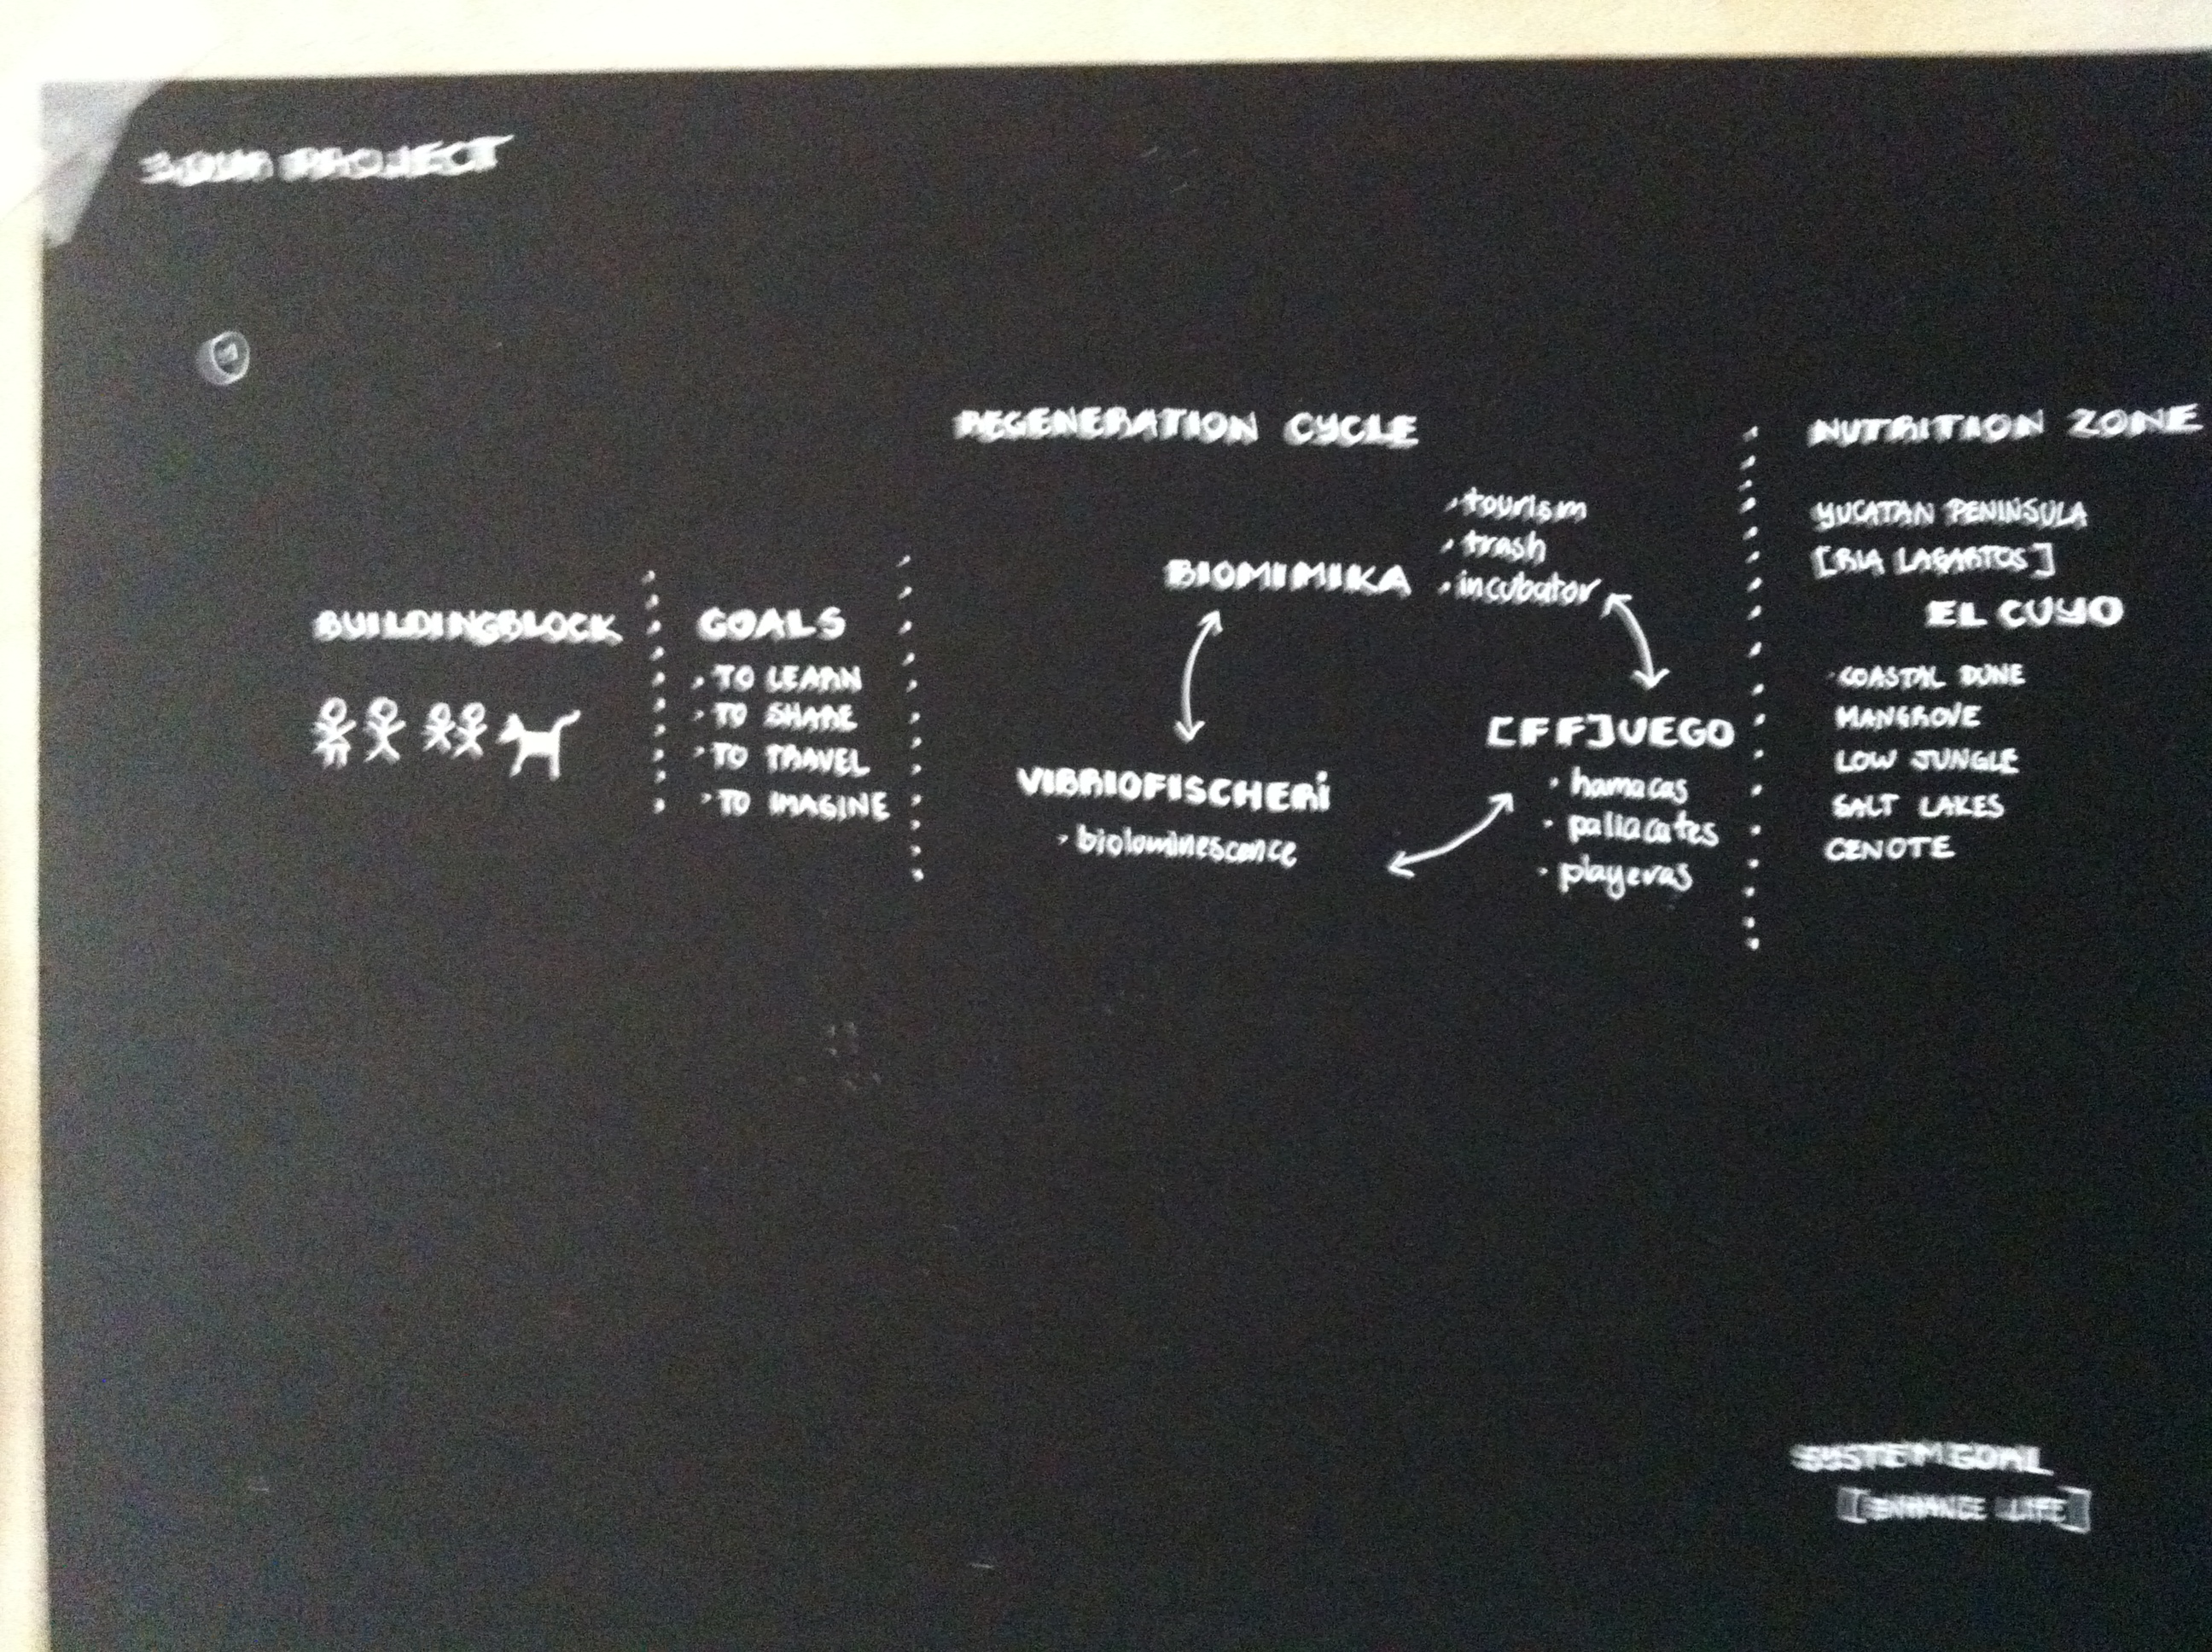 PROJECT
REGENERATION CYCLE
NUTRITION ZONE
BUILDINGBLOCK
GOALS
· TO LEARN
· TO SHARE
· TO TRAVEL
· TO IMAGINE
BIOMIMIKA
· tourism
· trash
· incubator
VIBRIOFISCHERi
· bioluminescence
[FF]UEGO
· hamacas
· paliacates
· playeras
YUCATAN PENINSULA
[RIA LAGARTOS]
EL CUYO
COASTAL DUNE
MANGROVE
LOW JUNGLE
SALT LAKES
CENOTE
SYSTEM GOAL
[ENHANCE LIFE]